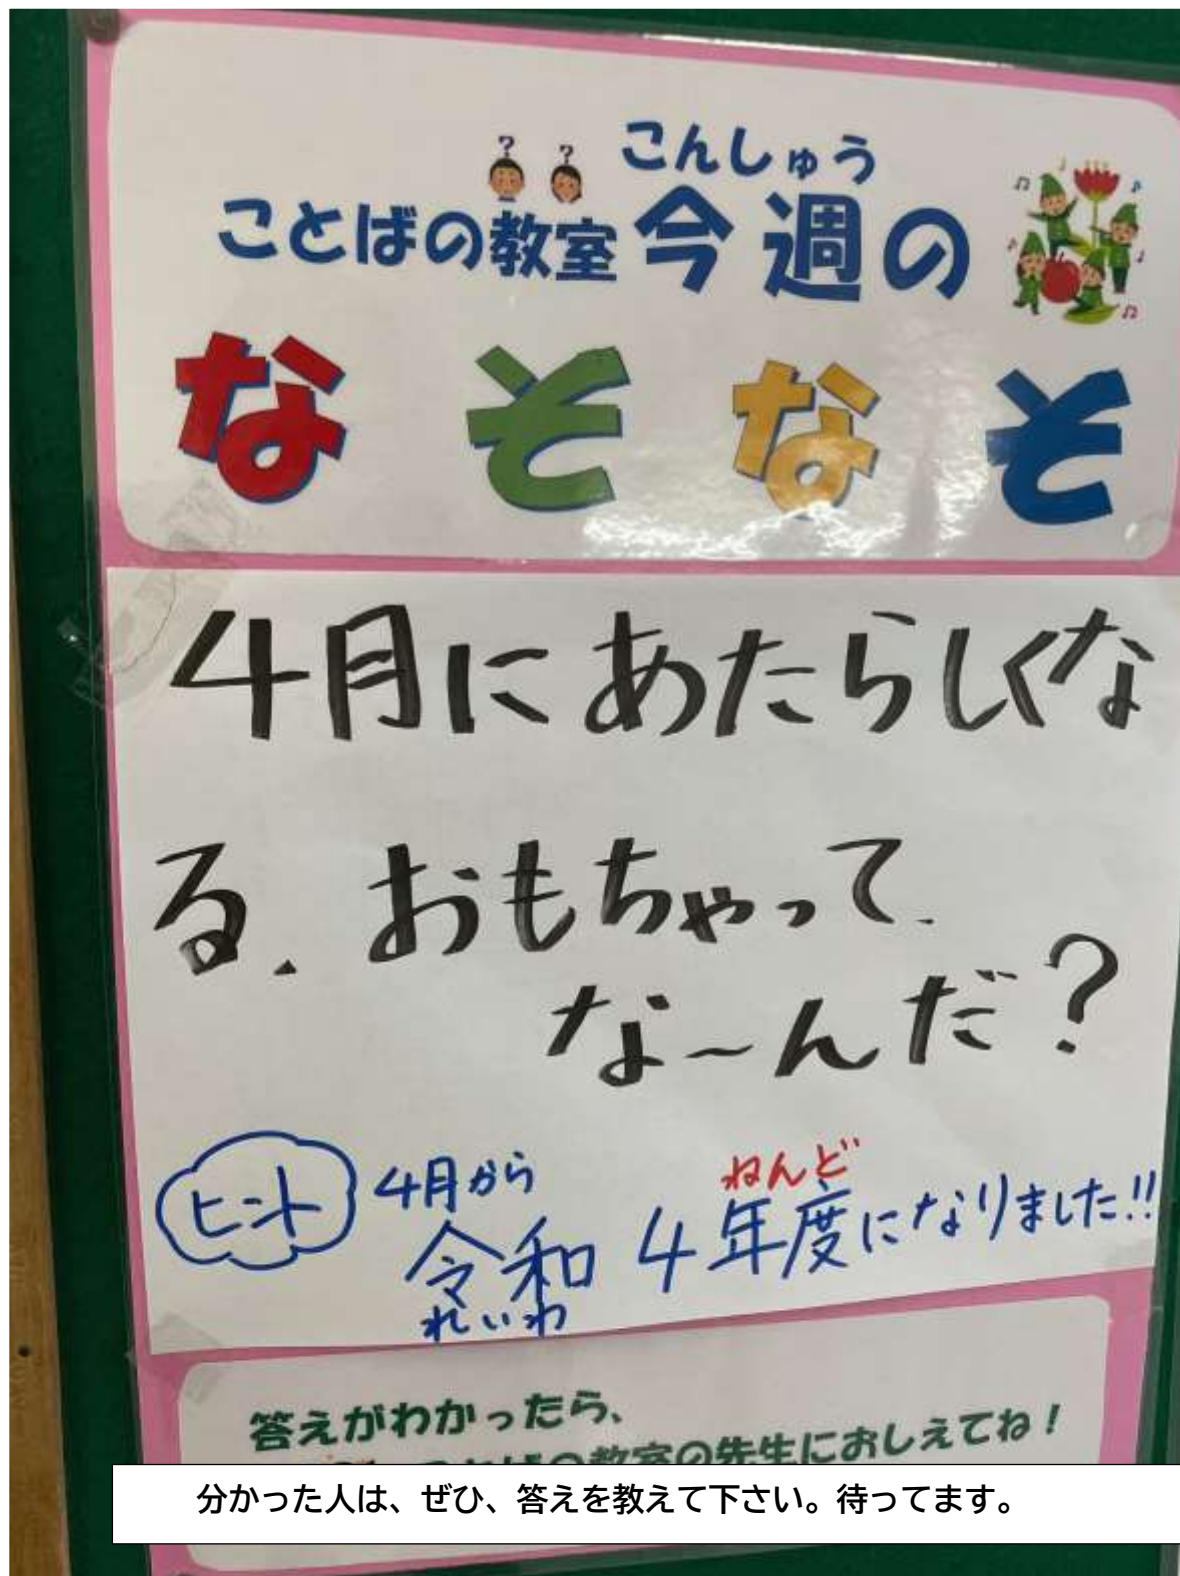 こんしゅう
ことばの教室 今週の
なぞなぞ
4月にあたらしくな
る、おもちゃって、
な〜んだ?
ヒント 4月から
ねんど
令和 4年度になりました!!
れいわ
答えがわかったら、
ことばの教室の先生におしえてね!
分かった人は、ぜひ、答えを教えて下さい。待ってます。